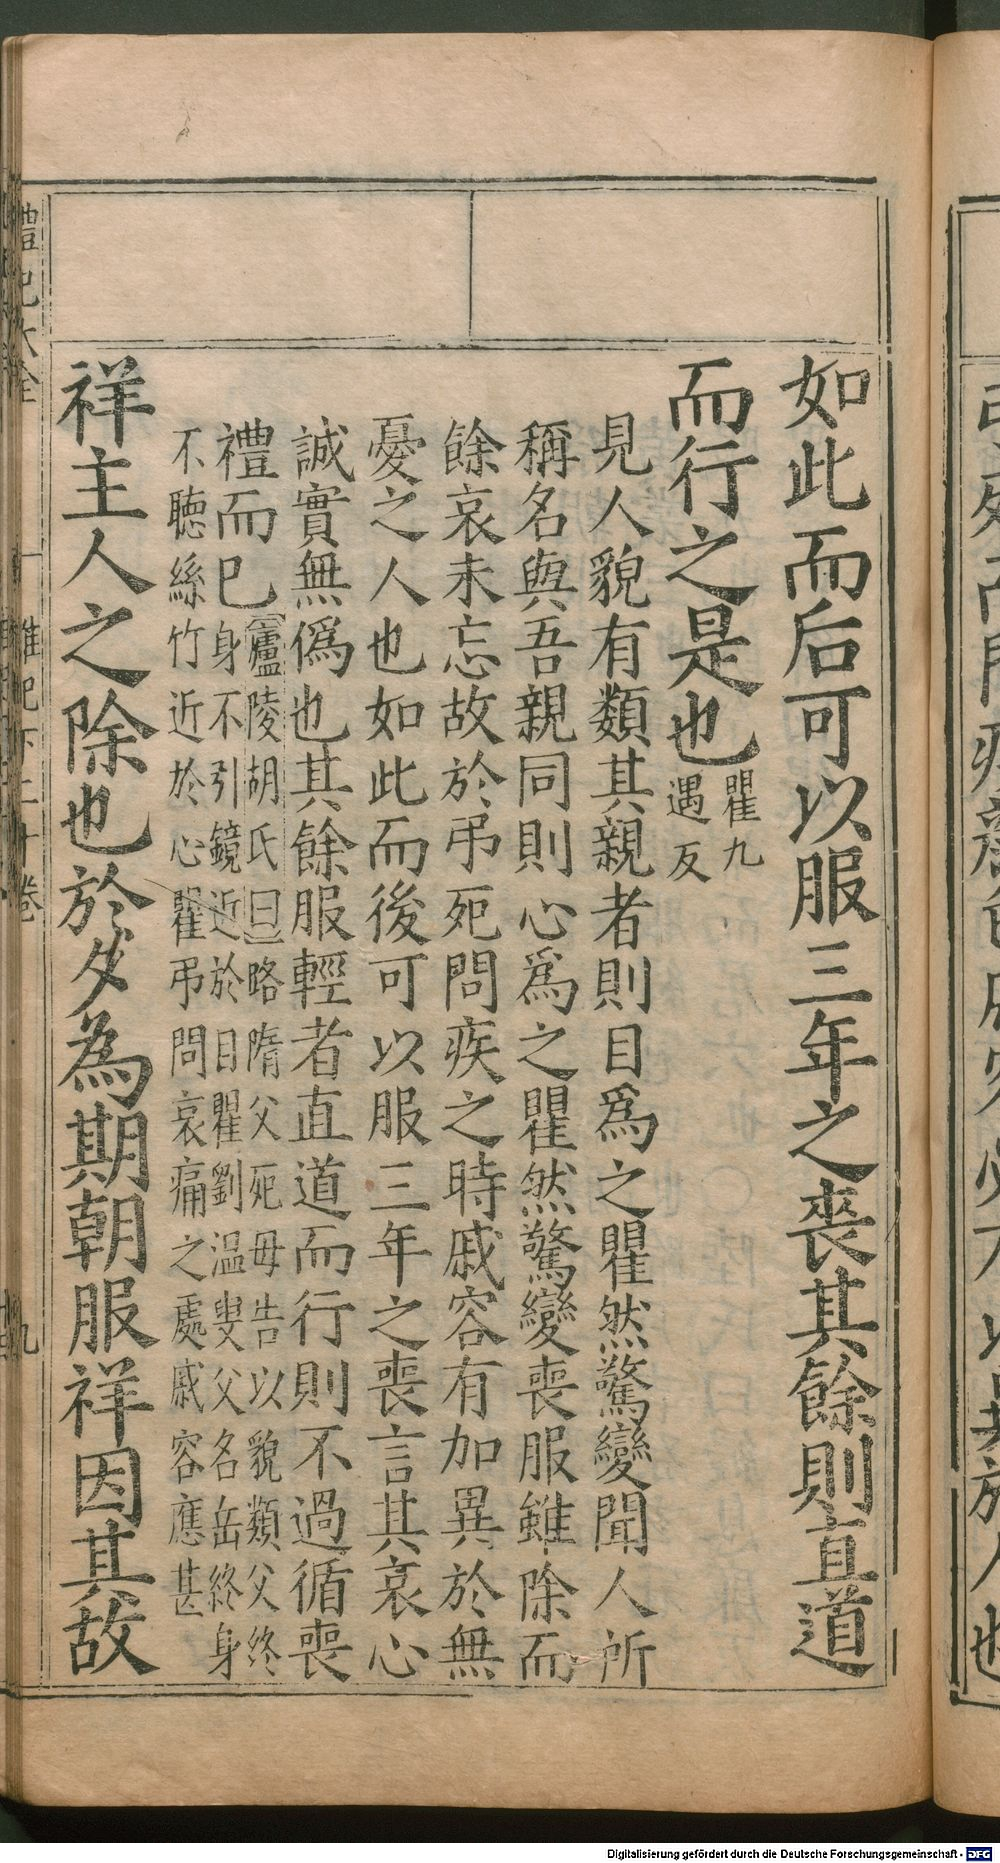 如此而后可以服三年之喪其餘則直道
而行之是也瞿九
遇反
見人貌有類其親者則目爲之瞿然驚變聞人所
稱名與吾親同則心爲之瞿然驚變喪服雖除而
餘哀未忘故於弔死問疾之時戚容有加異於無
憂之人也如此而後可以服三年之喪言其哀心
誠實無僞也其餘服輕者直道而行則不過循喪
禮而已
廬陵胡氏曰略隋父死母告以貌類父終
身不引鏡近於目瞿劉溫叟父名岳終身
不聽絲竹近於心瞿弔問哀痛之處戚容應甚
祥主人之除也於夕為期朝服祥因其故
禮記大全
雜記下二十卷
九
Digitalisierung gefördert durch die Deutsche Forschungsgemeinschaft - DFG